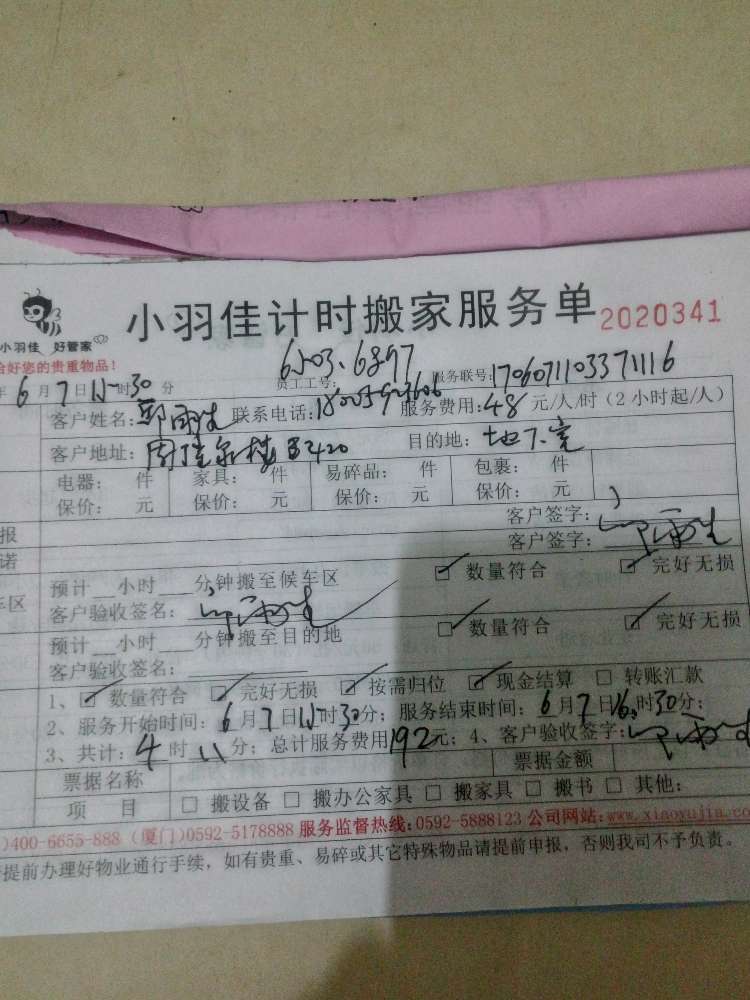 小羽佳 好管家
小羽佳计时搬家服务单 2020341
给好您的贵重物品！
6503.6897
年6月7日 时30分 员工工号： 服务联号：1706071103371116
客户姓名： 联系电话： 服务费用：48元/人/时（2小时起/人）
客户地址： 420 目的地：地下室
电器： 件 家具： 件 易碎品： 件 包裹： 件
保价： 元 保价： 元 保价： 元 保价： 元
报 客户签字：
诺 客户签字：
预计__小时___分钟搬至候车区 ☑ 数量符合 ☑ 完好无损
车区 客户验收签名：
预计__小时___分钟搬至目的地 ☑ 数量符合 ☑ 完好无损
客户验收签名：
1、☑ 数量符合 ☑ 完好无损 ☑ 按需归位 ☑ 现金结算 □ 转账汇款
2、服务开始时间：6月7日 时30分；服务结束时间：6月7日16时30分；
3、共计：4时 分；总计服务费用192元；4、客户验收签字：
票据名称 票据金额
项 目 □ 搬设备 □ 搬办公家具 □ 搬家具 □ 搬书 □ 其他：
)400-6655-888（厦门)0592-5178888 服务监督热线:0592-5888123 公司网站:www.xiaoyujia.com
提前办理好物业通行手续，如有贵重、易碎或其它特殊物品请提前申报，否则我司不予负责。